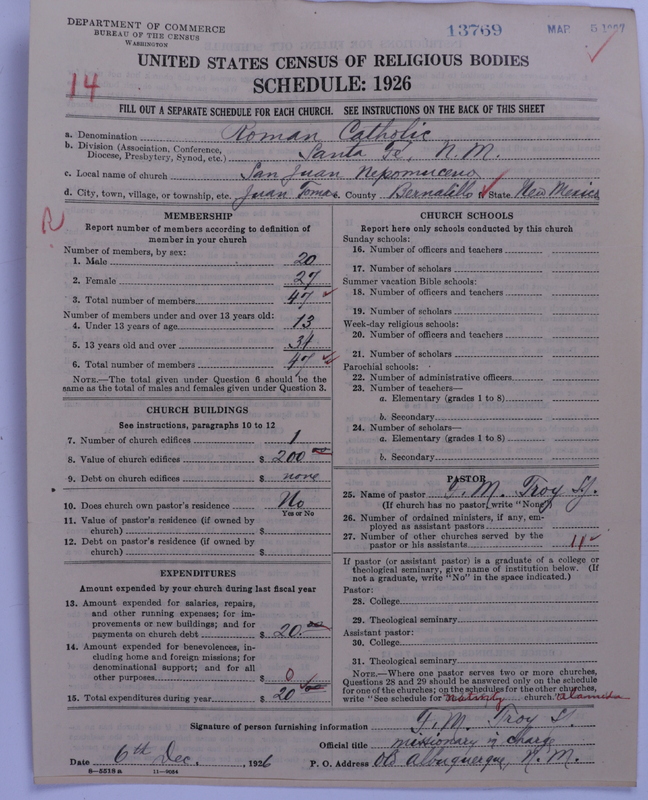 DEPARTMENT OF COMMERCE
BUREAU OF THE CENSUS
WASHINGTON
13769
MAR 5 1927
14
UNITED STATES CENSUS OF RELIGIOUS BODIES
SCHEDULE: 1926
FILL OUT A SEPARATE SCHEDULE FOR EACH CHURCH. SEE INSTRUCTIONS ON THE BACK OF THIS SHEET
a. Denomination Roman Catholic
b. Division (Association, Conference, Diocese, Presbytery, Synod, etc.) Santa Fe, N. M.
c. Local name of church San Juan Nepomuceno
d. City, town, village, or township, etc. Juan Tomas e. County Bernalillo f. State New Mexico
MEMBERSHIP
Report number of members according to definition of
member in your church
Number of members, by sex:
1. Male 20
2. Female 27
3. Total number of members 47
Number of members under and over 13 years old:
4. Under 13 years of age 13
5. 13 years old and over 34
6. Total number of members 47
NOTE.—The total given under Question 6 should be the
same as the total of males and females given under Question 3.
CHURCH BUILDINGS
See instructions, paragraphs 10 to 12
7. Number of church edifices 1
8. Value of church edifices $ 200 00
9. Debt on church edifices $ none
10. Does church own pastor's residence No
Yes or No
11. Value of pastor's residence (if owned by
church) $
12. Debt on pastor's residence (if owned by
church) $
EXPENDITURES
Amount expended by your church during last fiscal year
13. Amount expended for salaries, repairs,
and other running expenses; for im-
provements or new buildings; and for
payments on church debt $ 20.00
14. Amount expended for benevolences, in-
cluding home and foreign missions; for
denominational support; and for all
other purposes $ 0
15. Total expenditures during year $ 20 00
CHURCH SCHOOLS
Report here only schools conducted by this church
Sunday schools:
16. Number of officers and teachers
17. Number of scholars
Summer vacation Bible schools:
18. Number of officers and teachers
19. Number of scholars
Week-day religious schools:
20. Number of officers and teachers
21. Number of scholars
Parochial schools:
22. Number of administrative officers
23. Number of teachers—
a. Elementary (grades 1 to 8)
b. Secondary
24. Number of scholars—
a. Elementary (grades 1 to 8)
b. Secondary
PASTOR
25. Name of pastor M. Troy S.J.
(If church has no pastor, write "None")
26. Number of ordained ministers, if any, em-
ployed as assistant pastors
27. Number of other churches served by the
pastor or his assistants
If pastor (or assistant pastor) is a graduate of a college or
theological seminary, give name of institution below. (If
not a graduate, write "No" in the space indicated.)
Pastor:
28. College
29. Theological seminary
Assistant pastor:
30. College
31. Theological seminary
NOTE.—Where one pastor serves two or more churches,
Questions 28 and 29 should be answered only on the schedule
for one of the churches; on the schedules for the other churches,
write "See schedule for Nativity church Alameda
Signature of person furnishing information M. Troy SJ.
Official title missionary in charge
Date 6th Dec., 1926 P. O. Address Old Albuquerque, N. M.
8—5518a 11—9034